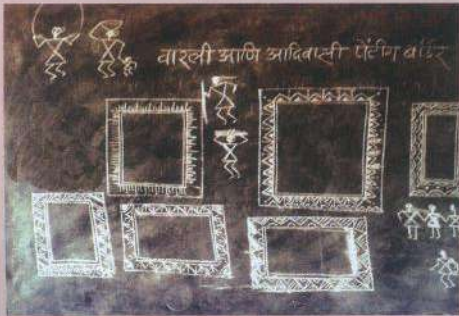 वारली आणि आदिवासी पेंटींग बॉर्डर